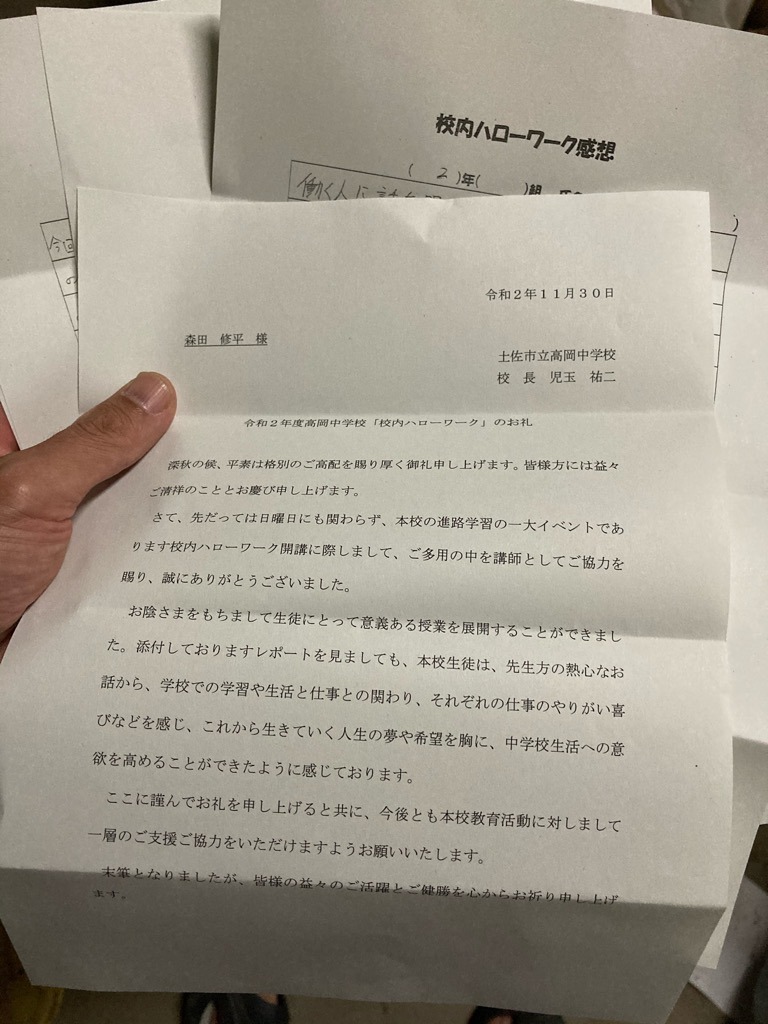 校内ハローワーク感想
( 2 )年( )組
働く人に
今回
の
令和２年１１月３０日
森田 修平 様
土佐市立高岡中学校
校 長 児玉 祐二
令和２年度高岡中学校「校内ハローワーク」のお礼
深秋の候、平素は格別のご高配を賜り厚く御礼申し上げます。皆様方には益々
ご清祥のこととお慶び申し上げます。
さて、先だっては日曜日にも関わらず、本校の進路学習の一大イベントであ
ります校内ハローワーク開講に際しまして、ご多用の中を講師としてご協力を
賜り、誠にありがとうございました。
お陰さまをもちまして生徒にとって意義ある授業を展開することができまし
た。添付しておりますレポートを見ましても、本校生徒は、先生方の熱心なお
話から、学校での学習や生活と仕事との関わり、それぞれの仕事のやりがい喜
びなどを感じ、これから生きていく人生の夢や希望を胸に、中学校生活への意
欲を高めることができたように感じております。
ここに謹んでお礼を申し上げると共に、今後とも本校教育活動に対しまして
一層のご支援ご協力をいただけますようお願いいたします。
末筆となりましたが、皆様の益々のご活躍とご健勝を心からお祈り申し上げ
ます。